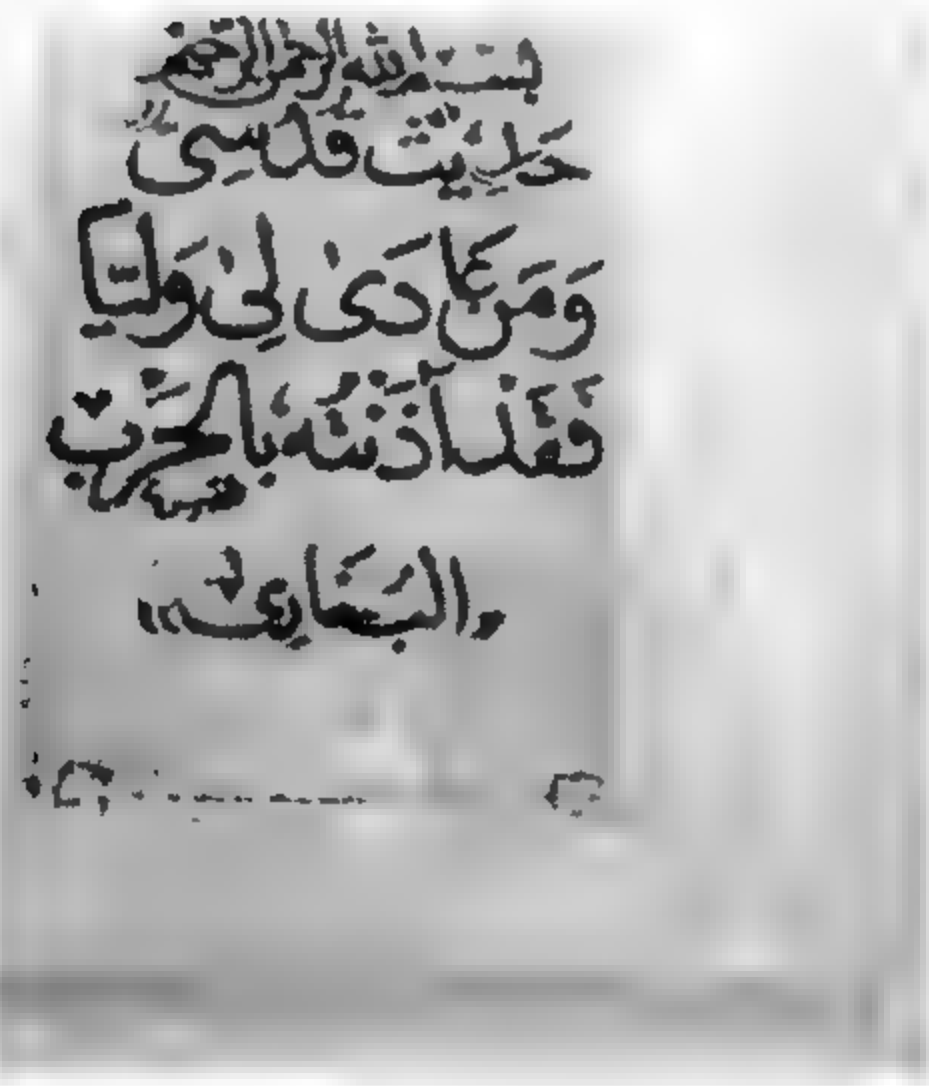 بسم الله الرحمن الرحيم
حَدِيثٌ قُدْسِيٌّ
وَمَنْ عَادَىٰ لِي وَلِيًّا
فَقَدْ آذَنْتُهُ بِالْحَرْبِ